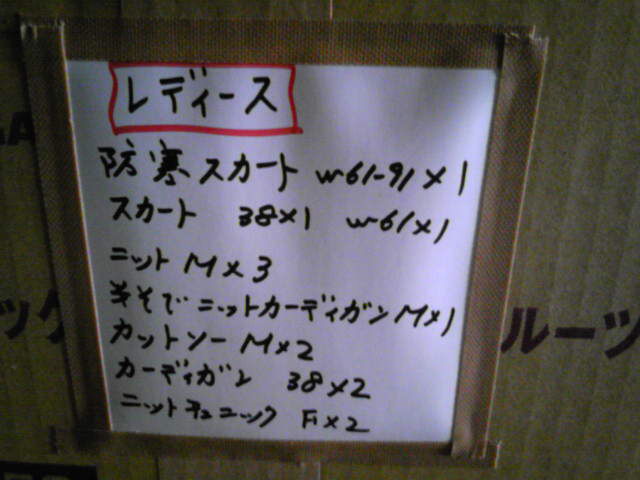 レディース
防寒スカート W61-91×1
スカート 38×1 W61×1
ニット M×3
半そでニットカーディガン M×1
カットソー M×2
カーディガン 38×2
ニットチュニック F×2
ルーツ